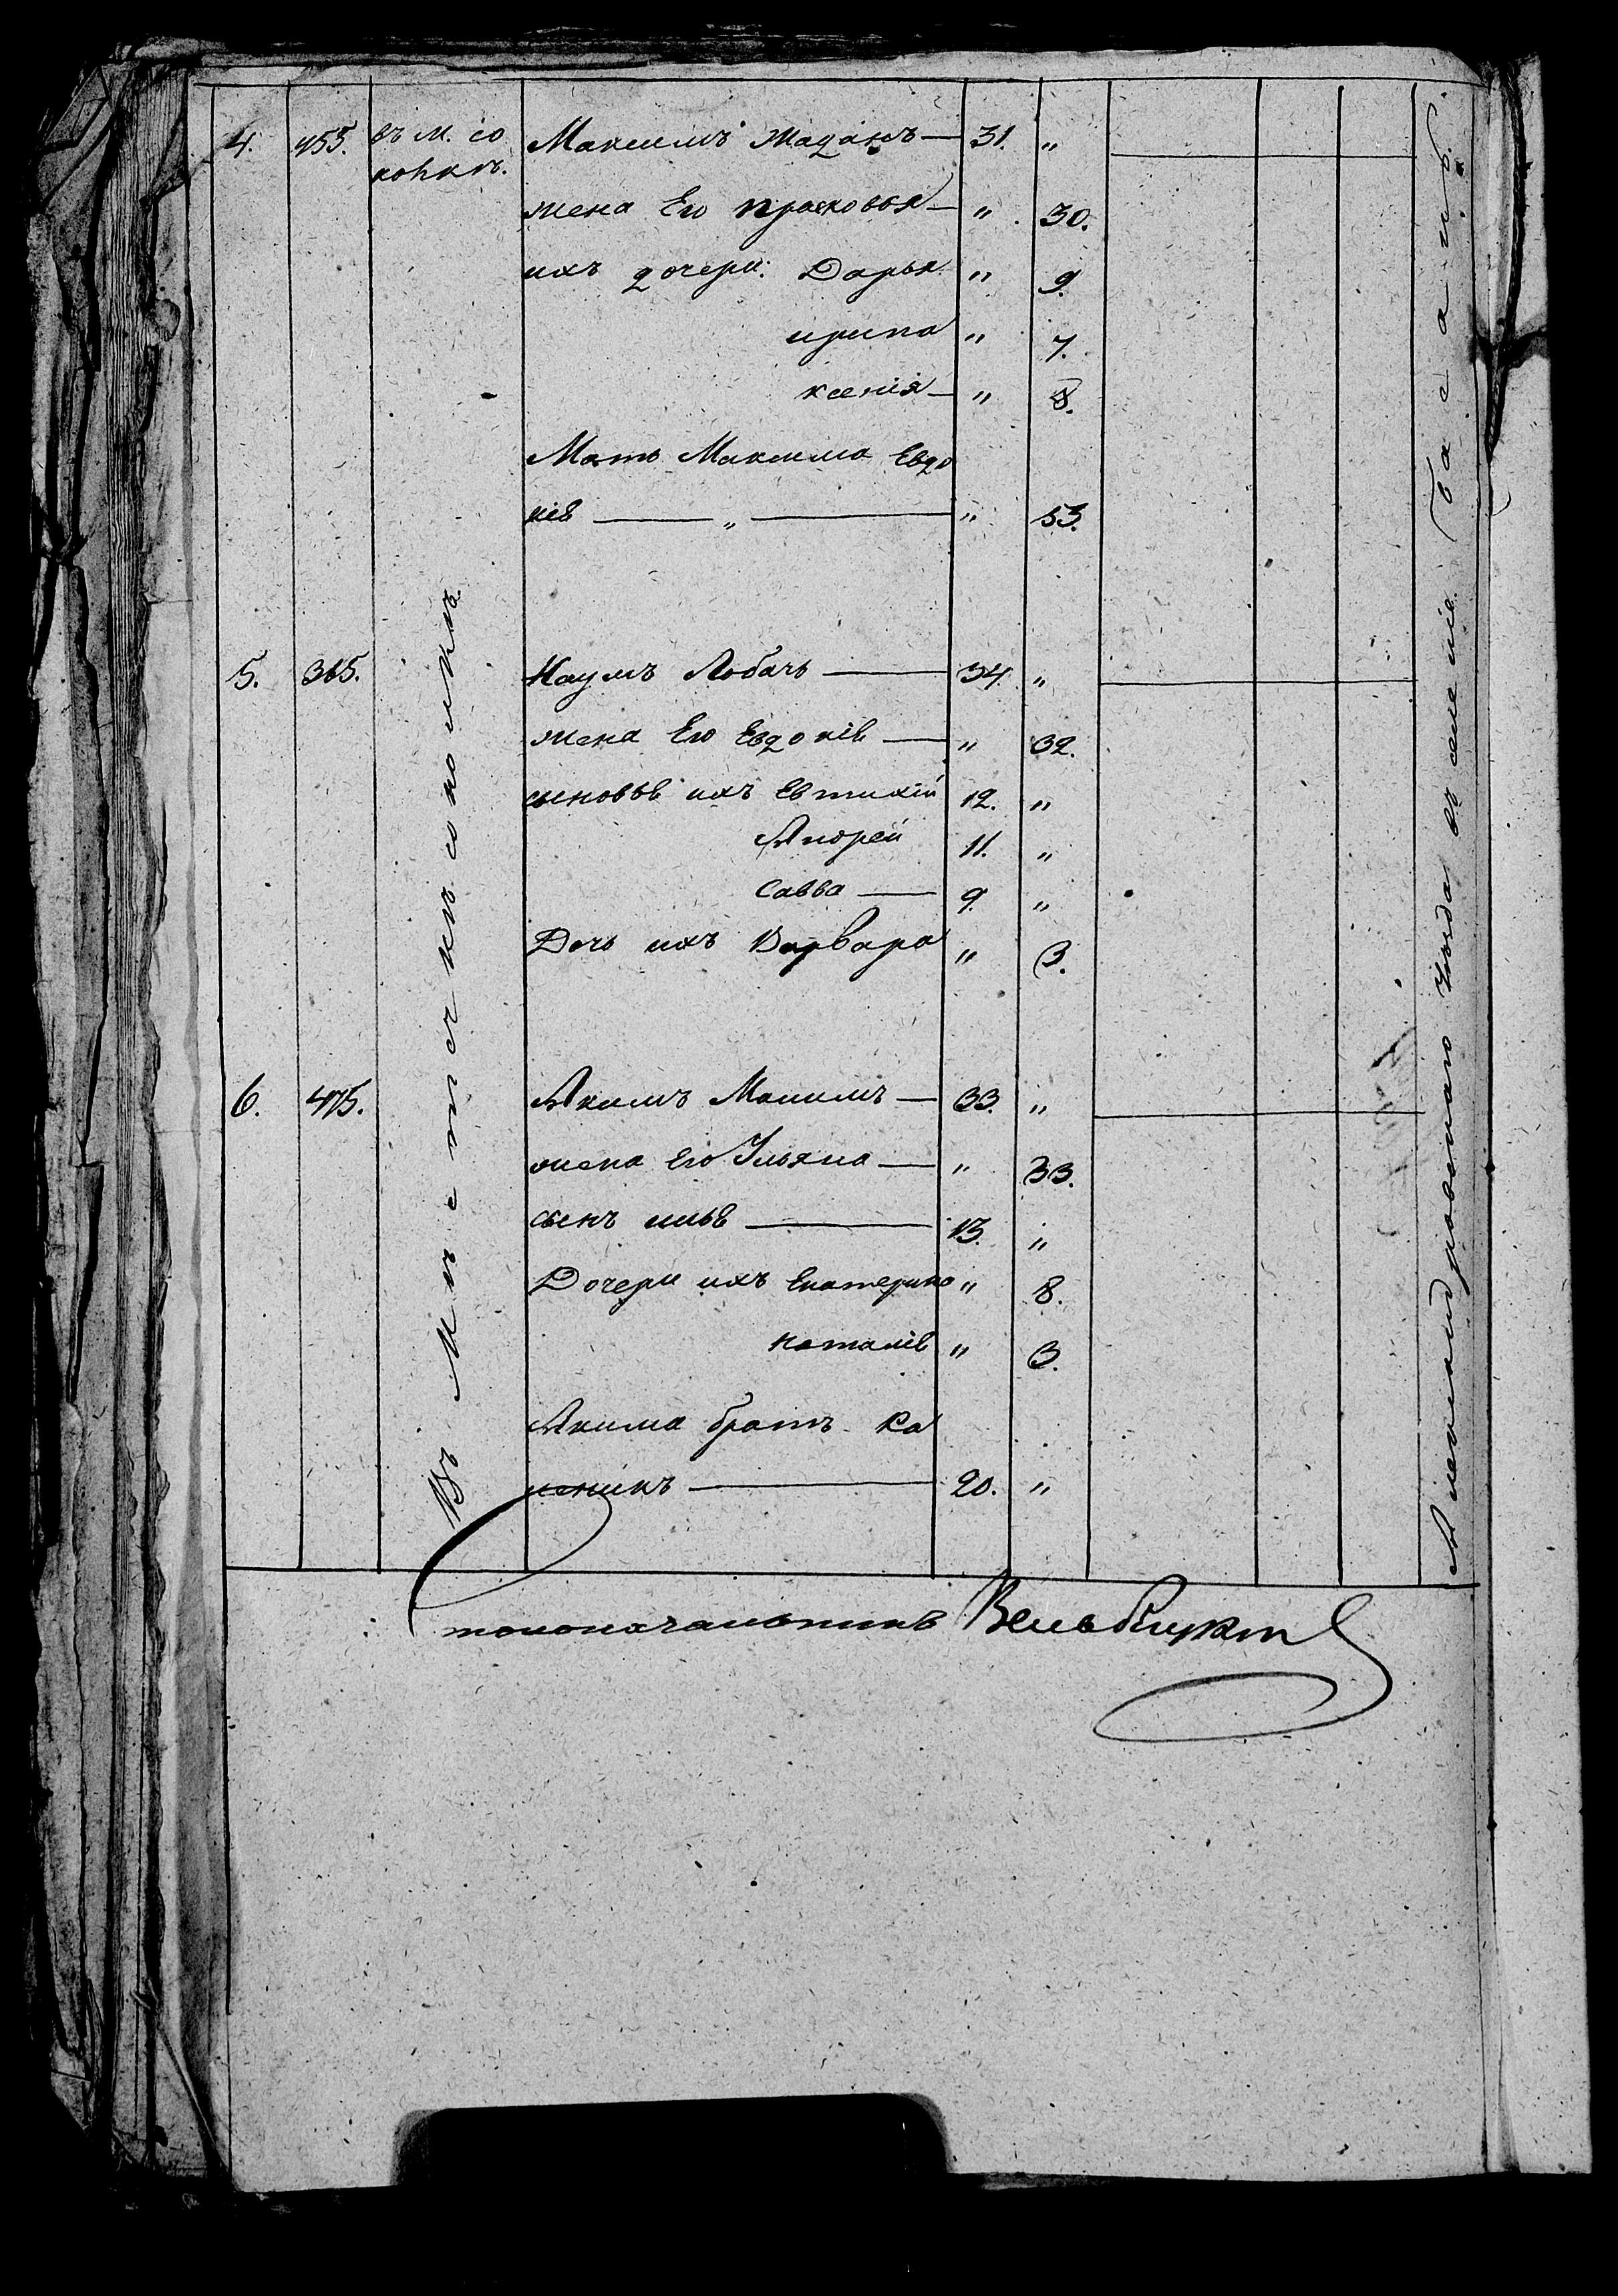 4. 453. въ м. со Максимъ Жаданъ — 31. "
колкѣ.
жена Его Прасковья — " 30.
ихъ дочери: Дарья " 9.
ирина " 7.
ксенія — " 8.
Мать Максима Евдо
кія — " — " 53.
5. 365. Наумъ Лобачь — 34. "
жена Его Евдокія — " 32.
сыновья ихъ Евтихій 12. "
Андрей 11. "
Савва — 9. "
Дочь ихъ Варвара " 3.
6. 475. Акимъ — 33. "
жена Его Ульяна — " 33.
сынъ илья — 13. "
Дочери ихъ Екатерина " 8.
наталія " 3.
Акима братъ Ка
леникъ — 20. "
Въ Мѣстечкѣ соколкѣ
Александровскаго уѣзда въ селеніе
столоначальникъ